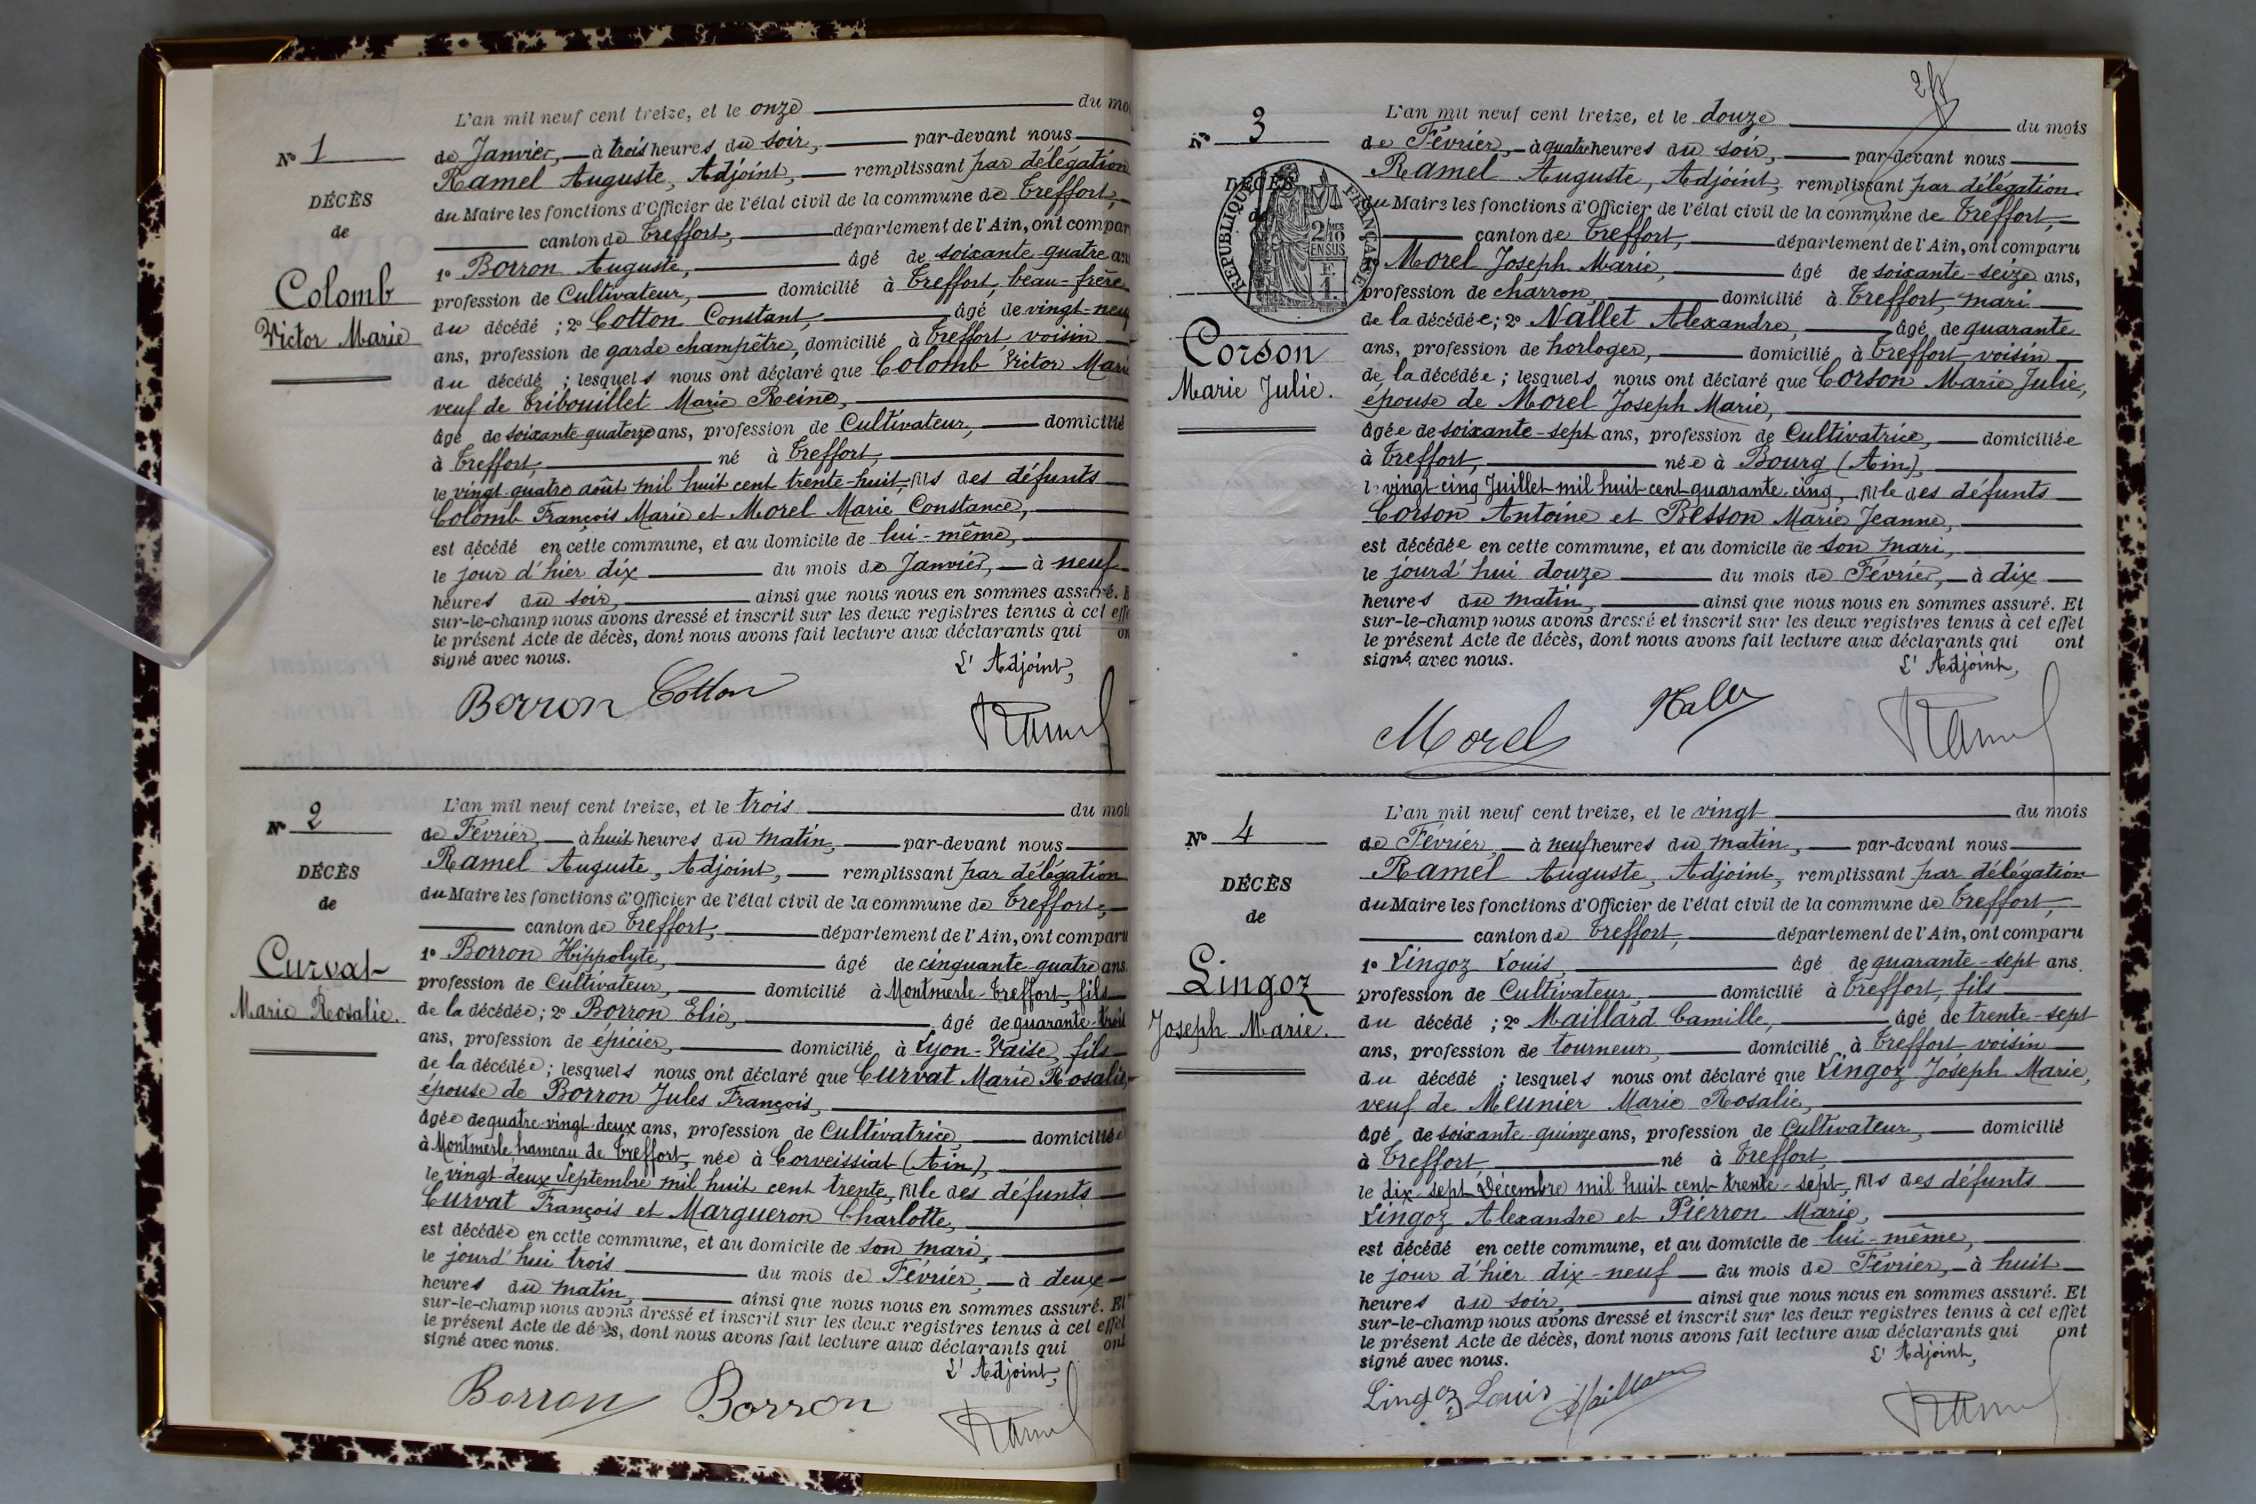 L'an mil neuf cent treize, et le onze du mo
Nº 1
de Janvier, à trois heures du soir, par-devant nous
Ramel Auguste, Adjoint, remplissant par délégation
DÉCÈS
du Maire les fonctions d'Officier de l'état civil de la commune de Treffort,
de
canton de Treffort, département de l'Ain, ont compar
1º Borron Auguste, âgé de soixante-quatre ans
Colomb
profession de Cultivateur, domicilié à Treffort, beau-frère
Victor Marie
du décédé ; 2º Cotton Constant, âgé de vingt-neuf
ans, profession de garde champêtre, domicilié à Treffort, voisin
du décédé ; lesquels nous ont déclaré que Colomb Victor Marie
veuf de Tribouillet Marie Reine,
âgé de soixante-quatorze ans, profession de Cultivateur, domicilié
à Treffort, né à Treffort,
le vingt-quatre août mil huit cent trente-huit, fils des défunts
Colomb François Marie et Morel Marie Constance,
est décédé en cette commune, et au domicile de lui-même,
le jour d'hier dix du mois de Janvier, à neuf
heures du soir, ainsi que nous nous en sommes assuré. E
sur-le-champ nous avons dressé et inscrit sur les deux registres tenus à cet effe
le présent Acte de décès, dont nous avons fait lecture aux déclarants qui on
signé avec nous.
L'Adjoint,
Borron Cotton
Ramel
L'an mil neuf cent treize, et le trois du mois
Nº 2
de Février, à huit heures du matin, par-devant nous
Ramel Auguste, Adjoint, remplissant par délégation
DÉCÈS
du Maire les fonctions d'Officier de l'état civil de la commune de Treffort,
de
canton de Treffort, département de l'Ain, ont comparu
1º Borron Hippolyte, âgé de cinquante-quatre ans
Curvat
profession de Cultivateur, domicilié à Montmerle-Treffort, fils
Marie Rosalie.
de la décédée ; 2º Borron Elie, âgé de quarante-trois
ans, profession de épicier, domicilié à Lyon-Vaise, fils
de la décédée ; lesquels nous ont déclaré que Curvat Marie Rosalie,
épouse de Borron Jules François,
âgée de quatre-vingt-deux ans, profession de Cultivatrice, domiciliée
à Montmerle, hameau de Treffort, née à Corveissiat (Ain),
le vingt-deux Septembre mil huit cent trente, fille des défunts
Curvat François et Margueron Charlotte,
est décédée en cette commune, et au domicile de son mari,
le jourd'hui trois du mois de Février, à deux
heures du matin, ainsi que nous nous en sommes assuré. Et
sur-le-champ nous avons dressé et inscrit sur les deux registres tenus à cet effet
le présent Acte de décès, dont nous avons fait lecture aux déclarants qui ont
signé avec nous.
L'Adjoint,
Borron Borron
Ramel
L'an mil neuf cent treize, et le douze du mois
Nº 3
de Février, à quatre heures du soir, par-devant nous
Ramel Auguste, Adjoint, remplissant par délégation
DÉCÈS
du Maire les fonctions d'Officier de l'état civil de la commune de Treffort,
de
RÉPUBLIQUE FRANÇAISE
2/10
EN SUS
canton de Treffort, département de l'Ain, ont comparu
Morel Joseph Marie, âgé de soixante-seize ans,
profession de charron, domicilié à Treffort, mari
Corson
de la décédée ; 2º Nallet Alexandre, âgé de quarante
ans, profession de horloger, domicilié à Treffort, voisin
Marie Julie.
de la décédée ; lesquels nous ont déclaré que Corson Marie Julie,
épouse de Morel Joseph Marie,
âgée de soixante-sept ans, profession de Cultivatrice, domiciliée
à Treffort, née à Bourg (Ain),
le vingt-cinq Juillet mil huit cent quarante-cinq, fille des défunts
Corson Antoine et Besson Marie Jeanne,
est décédée en cette commune, et au domicile de son mari,
le jourd'hui douze du mois de Février, à dix
heures du matin, ainsi que nous nous en sommes assuré. Et
sur-le-champ nous avons dressé et inscrit sur les deux registres tenus à cet effet
le présent Acte de décès, dont nous avons fait lecture aux déclarants qui ont
signé avec nous.
L'Adjoint,
Morel
Ramel
L'an mil neuf cent treize, et le vingt du mois
Nº 4
de Février, à neuf heures du matin, par-devant nous
Ramel Auguste, Adjoint, remplissant par délégation
DÉCÈS
du Maire les fonctions d'Officier de l'état civil de la commune de Treffort,
de
canton de Treffort, département de l'Ain, ont comparu
1º Lingoz Louis, âgé de quarante-sept ans
Lingoz
profession de Cultivateur, domicilié à Treffort, fils
Joseph Marie.
du décédé ; 2º Maillard Camille, âgé de trente-sept
ans, profession de tourneur, domicilié à Treffort voisin
du décédé ; lesquels nous ont déclaré que Lingoz Joseph Marie,
veuf de Meunier Marie Rosalie,
âgé de soixante-quinze ans, profession de Cultivateur, domicilié
à Treffort, né à Treffort,
le dix-sept Décembre mil huit cent trente-sept, fils des défunts
Lingoz Alexandre et Pierron Marie,
est décédé en cette commune, et au domicile de lui-même,
le jour d'hier dix-neuf du mois de Février, à huit
heures du soir, ainsi que nous nous en sommes assuré. Et
sur-le-champ nous avons dressé et inscrit sur les deux registres tenus à cet effet
le présent Acte de décès, dont nous avons fait lecture aux déclarants qui ont
signé avec nous.
L'Adjoint,
Lingoz Louis Maillard
Ramel